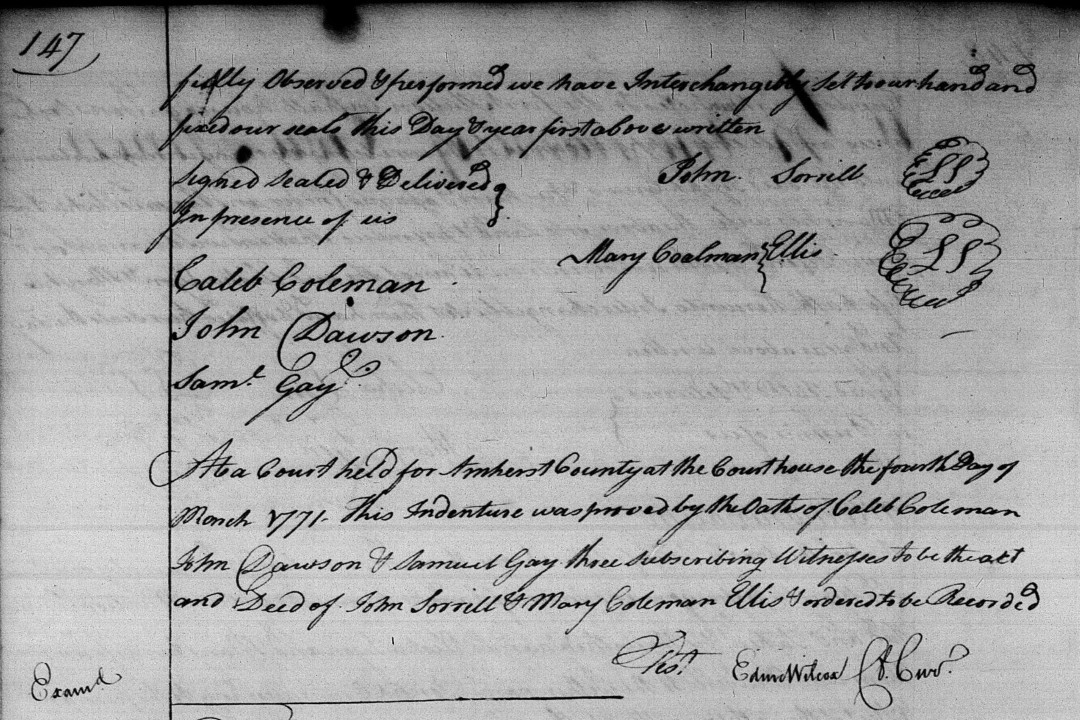 147
fully Observed & performed we have Interchangibly set to our hand and
fixed our seals this Day & year first above written
Signed Sealed & Delivered } John Sorrill LS
In presence of us
Mary Coalman Ellis LS
Caleb Coleman
John Dawson
Saml. Gay
At a Court held for Amherst County at the Courthouse the fourth Day of
March 1771. This Indenture was proved by the Oaths of Caleb Coleman
John Dawson & Samuel Gay three subscribing Witnesses to be the act
and Deed of John Sorrill & Mary Coleman Ellis & ordered to be Recorded
Test. Edmd Wilcox Ct. Curr.
Examd